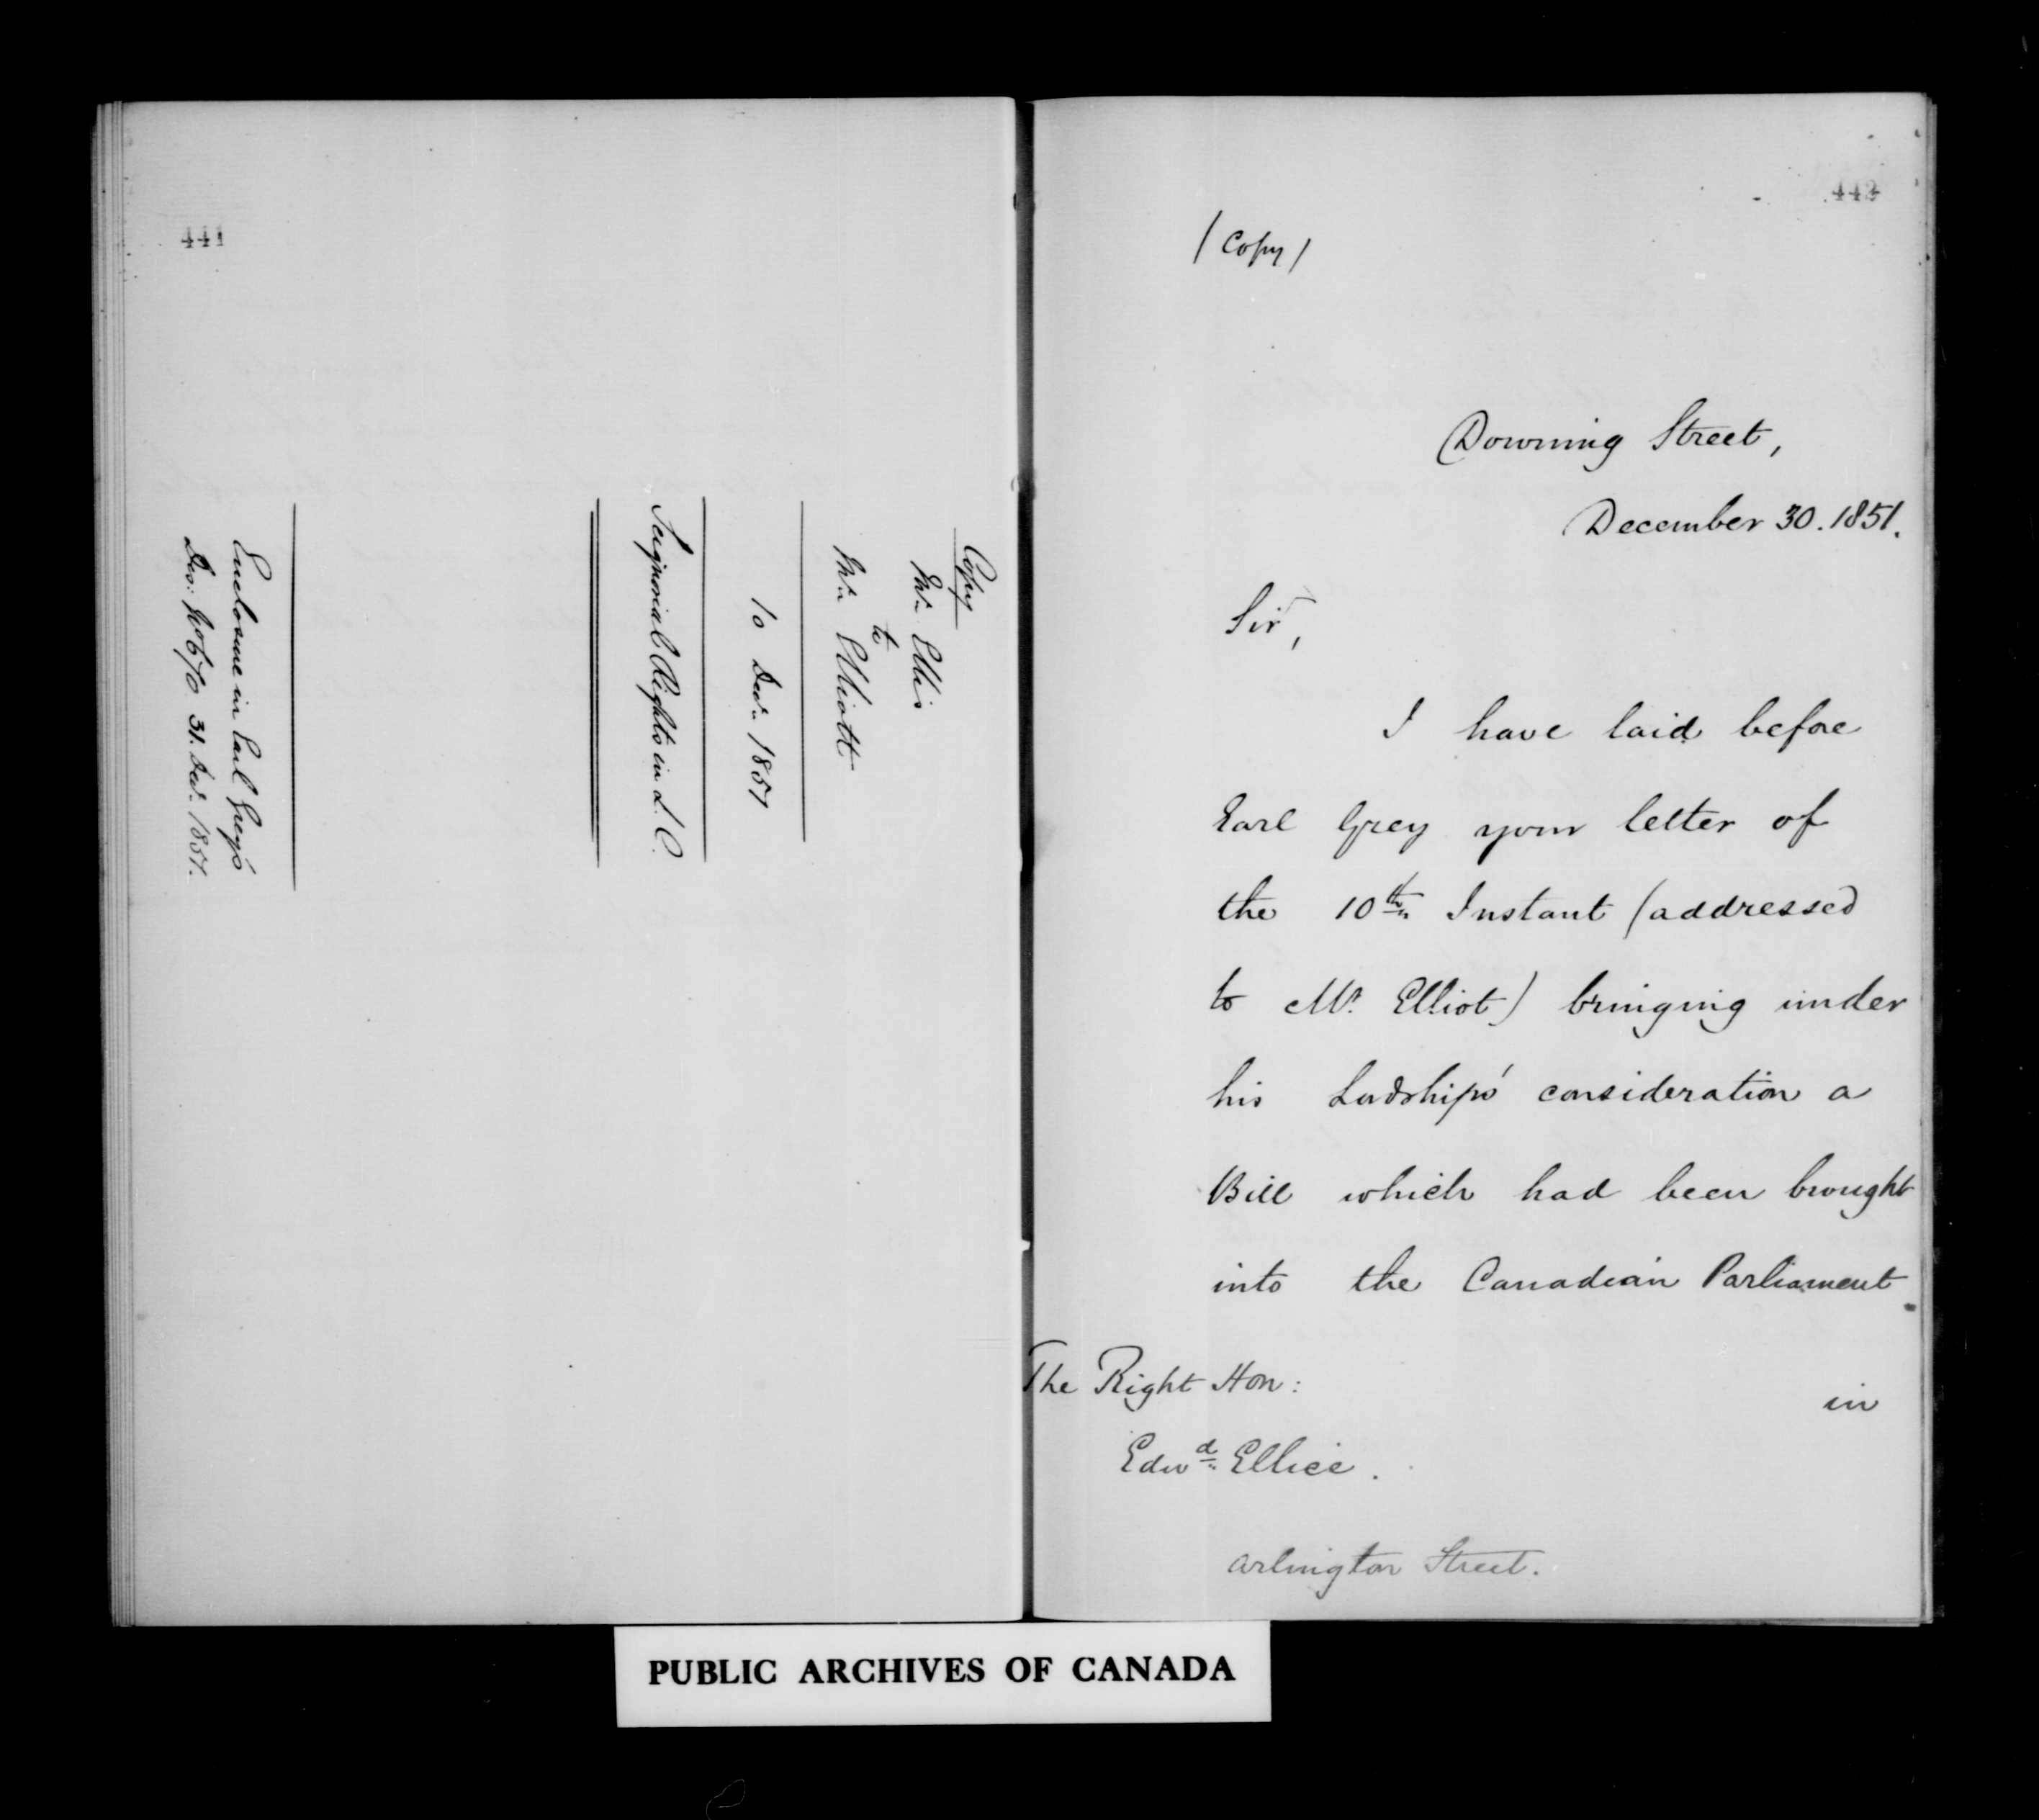 441
Copy
Mr. Ellis
to
Mr. Elliott
10 Decr. 1851
Seignorial Rights in L. C.
Enclosure in Earl Grey's
Des: No 670 31. Decr. 1851.
442
(Copy)
Downing Street,
December 30. 1851.
Sir,
I have laid before
Earl Grey your letter of
the 10th Instant (addressed
to Mr. Elliot) bringing under
his Lordship's consideration a
Bill which had been brought
into the Canadian Parliament
in
The Right Hon:
Edwd. Ellice.
Arlington Street.
PUBLIC ARCHIVES OF CANADA